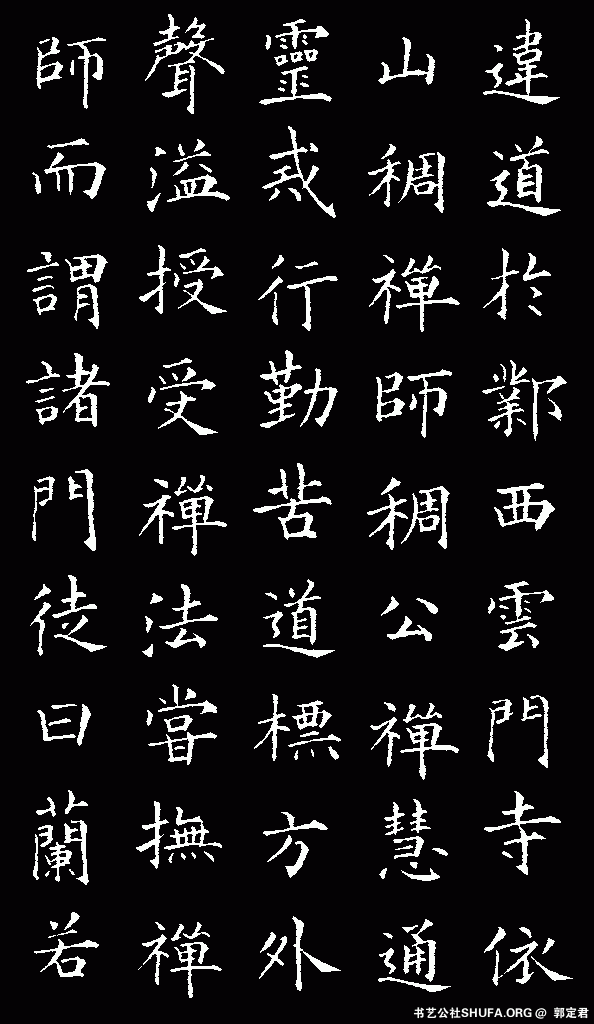 違道於鄴西雲門寺依
山稠禪師稠公禪慧通
靈戒行勤苦道標方外
聲溢授受禪法嘗撫禪
師而謂諸門徒曰蘭若
书艺公社SHUFA.ORG @ 郭定君